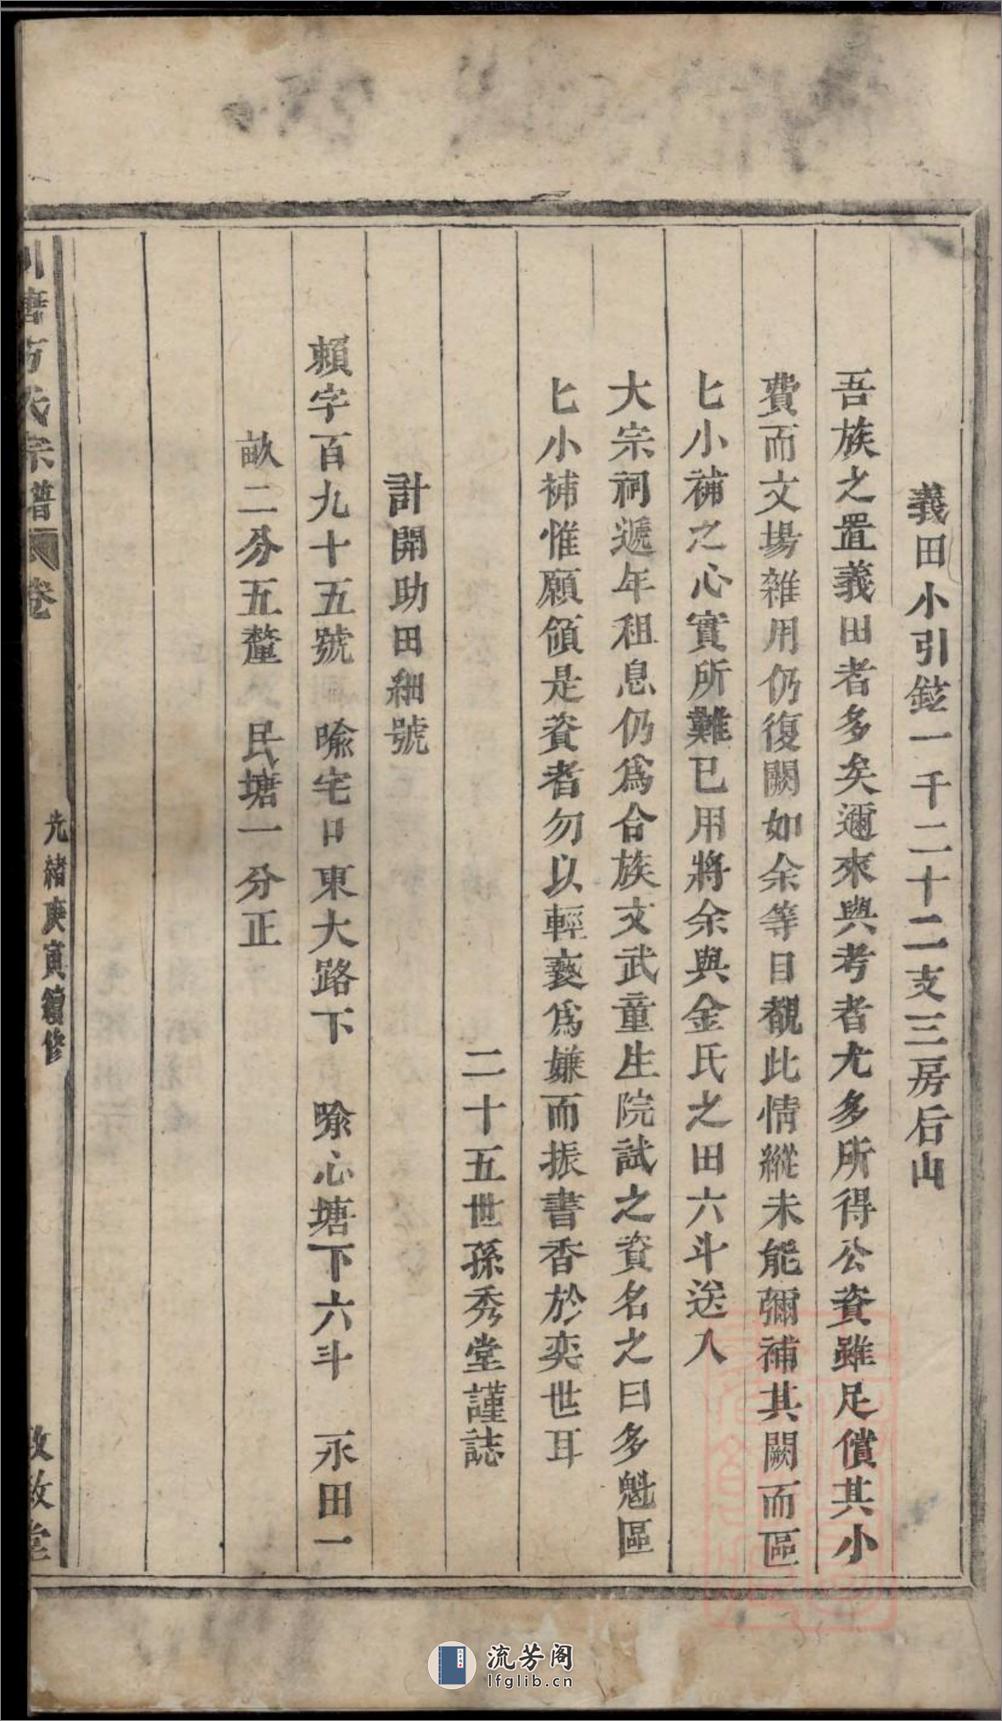 義田小引鉉一千二十二支三房后山
吾族之置義田者多矣邇來與考者尤多所得公資雖足償其小
費而文場雜用仍復闕如余等目覩此情縱未能彌補其闕而區
匕小補之心實所難已用將余與金氏之田六斗送入
大宗祠遞年租息仍爲合族文武童生院試之資名之曰多魁區
匕小補惟願領是資者勿以輕褻爲嫌而振書香於奕世耳
二十五世孫秀堂謹誌
計開助田細號
賴字百九十五號 喻宅口東大路下 喻心塘下六斗 永田一
畝二分五釐 民塘一分正
川唐方氏宗譜 卷
光緒庚寅續修
敦敘堂
流芳阁
lfglib.cn